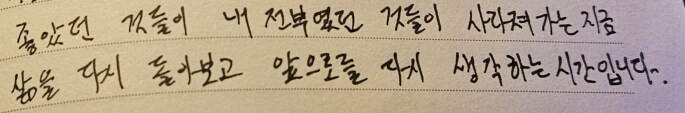 좋았던 것들이 내 전부였던 것들이 사라져가는 지금
삶을 다시 돌아보고 앞으로를 다시 생각하는 시간입니다~.